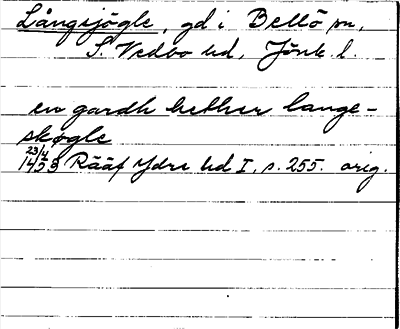 Långsjögle, gd i Bellö sn,
S. Vedbo hd, Jönk. l.
en gardh hether lange-
skøgle
23/4 1453 Rääf Ydre hd I, s. 255. orig.